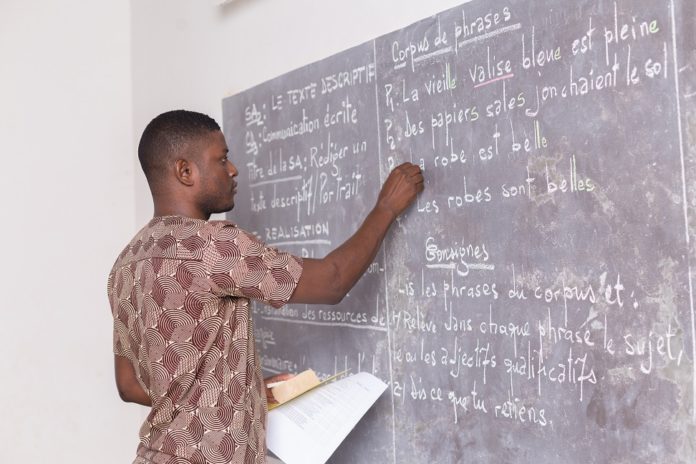 SA2: LE TEXTE DESCRIPTIF
Communication écrite
Titre de la SA: Rédiger un
texte descriptif/Portrait
REALISATION
des ressources de
Corpus de phrases
P1. La vieille valise bleue est pleine
P2. Des papiers sales jonchaient le sol
La robe est belle
Les robes sont belles
Consignes
Lis les phrases du corpus et :
1) Relève dans chaque phrase le sujet,
le ou les adjectifs qualificatifs.
2) Dis ce que tu retiens.